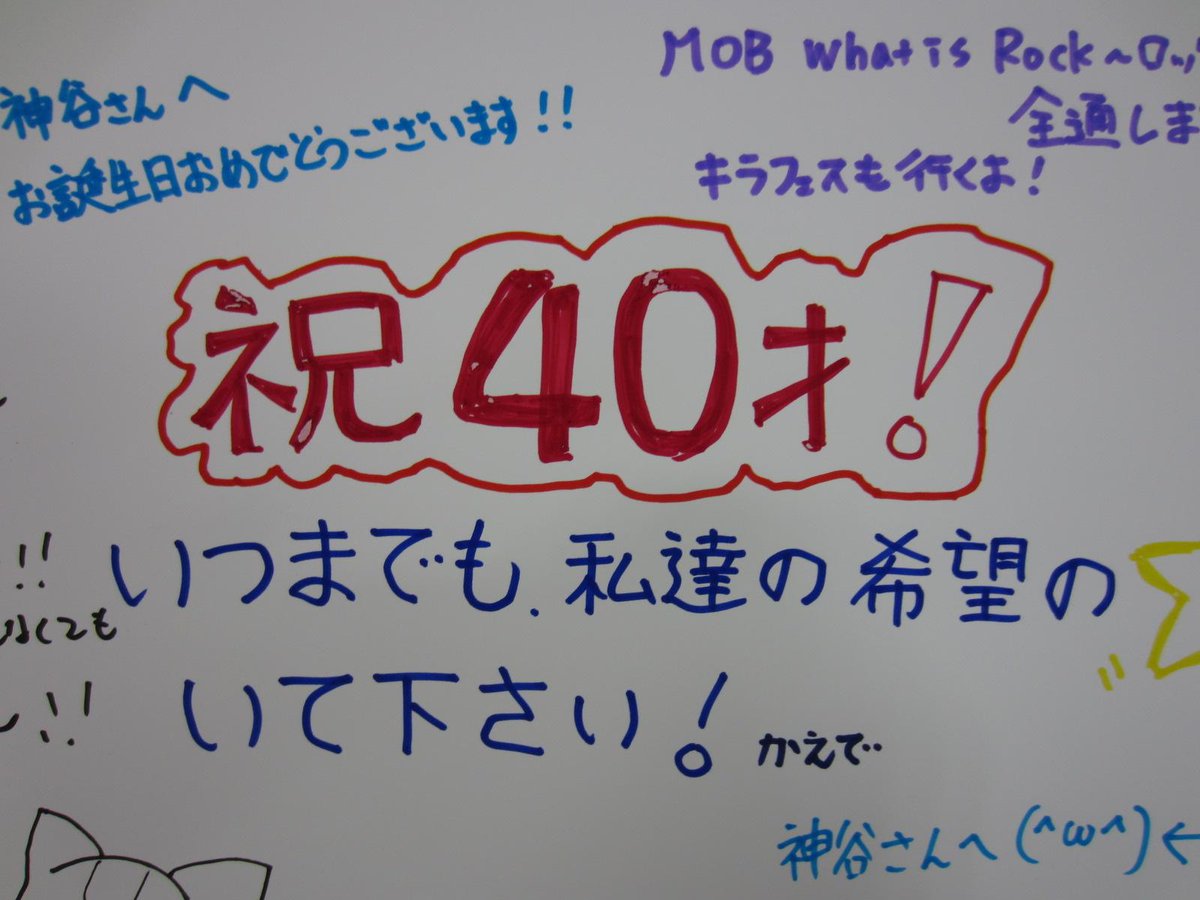 神谷さんへ
お誕生日おめでとうございます!!
MOB What is Rock～ロッ
全通しま
キラフェスも行くよ!
祝40才!
!!
いつまでも、私達の希望の
なくても
いて下さい!
!!
かえで‥
神谷さんへ(^ω^)←